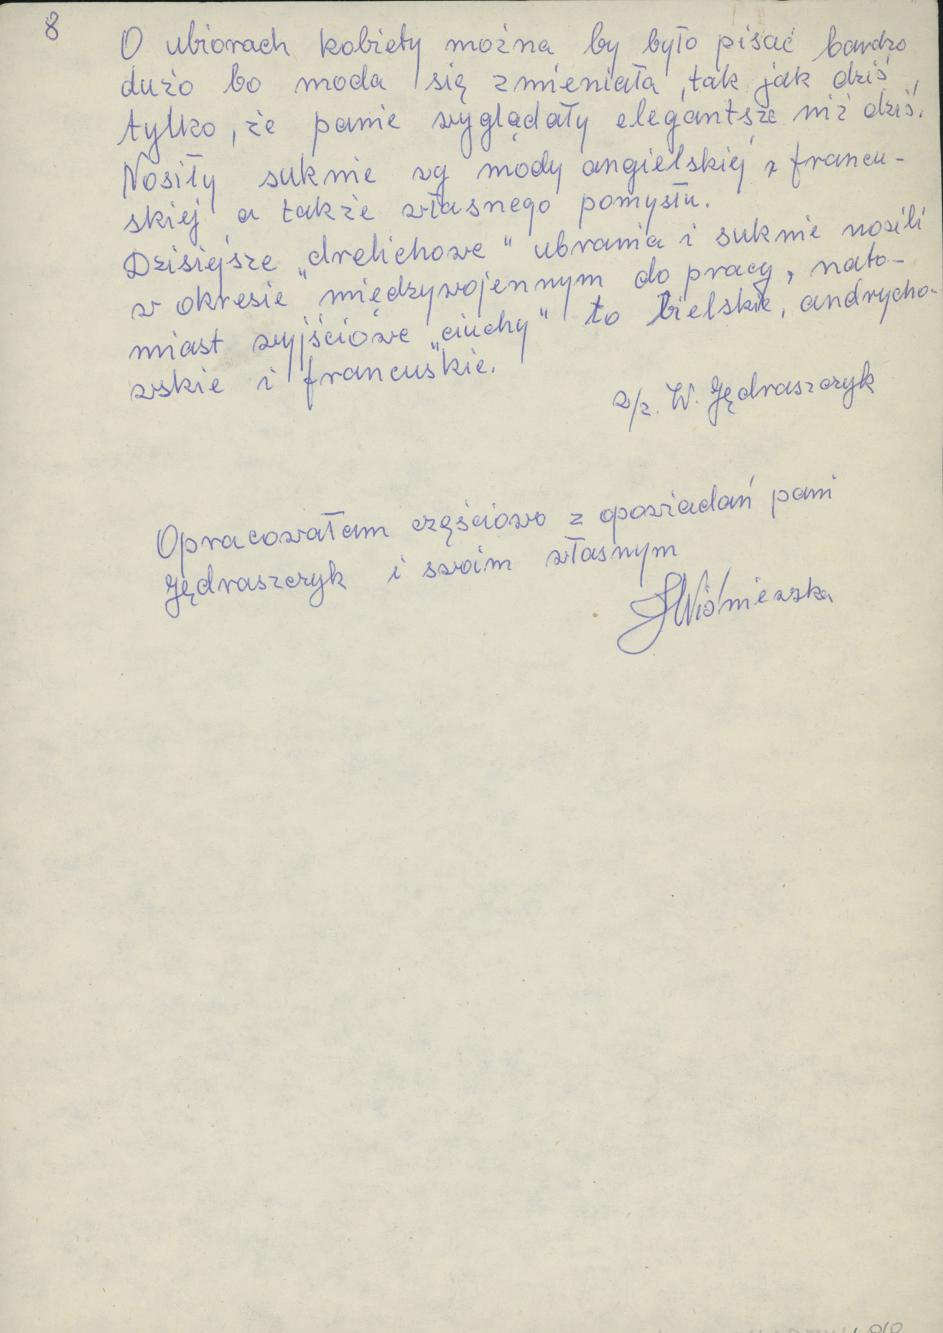 8
O ubiorach kobiety można by było pisać bardzo
dużo bo moda się zmieniała, tak jak dziś
tylko, że panie wyglądały elegantsze niż dziś.
Nosiły suknie wg mody angielskiej, francu-
skiej a także własnego pomysłu.
Dzisiejsze „drelichowe" ubrania i suknie nosili
w okresie międzywojennym do pracy, nato-
miast wyjściowe „ciuchy" to bielskie, andrycho-
wskie i francuskie.
W. Jędraszczyk
Opracowałam częściowo z opowiadań pani
Jędraszczyk i swoim własnym
Wiśniewska